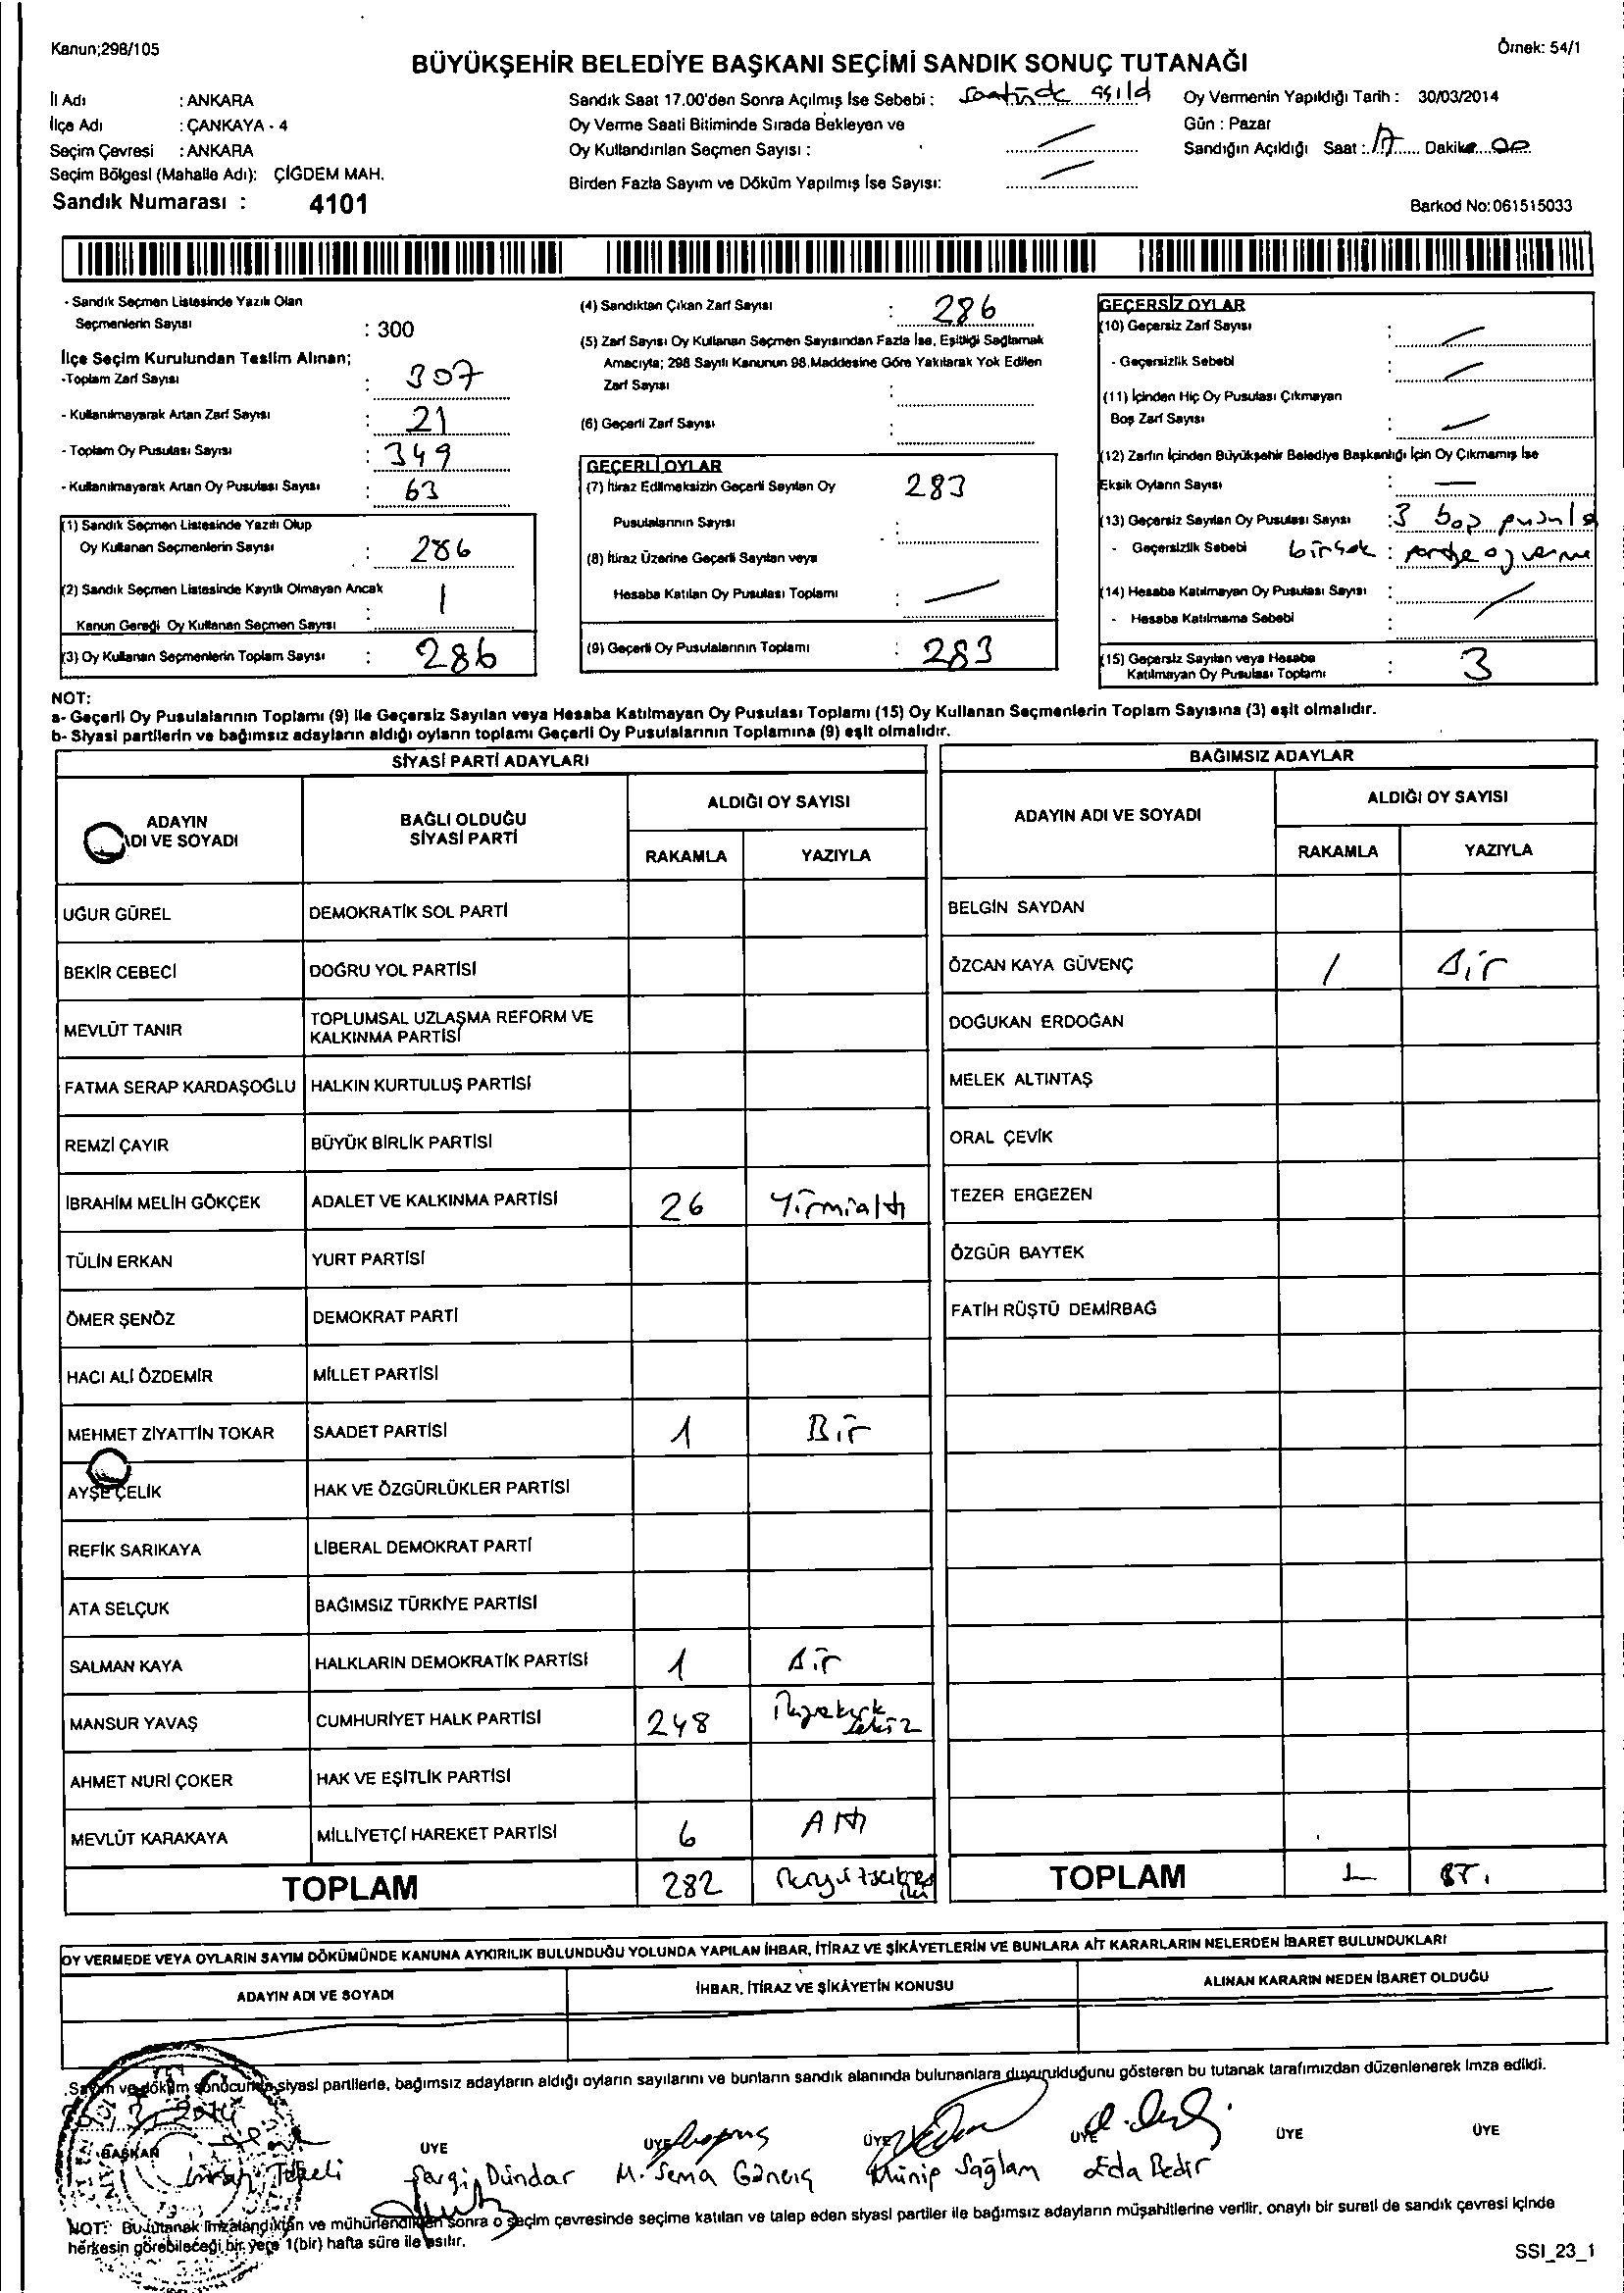 Kanun;298/105
Örnek: 54/1
BÜYÜKŞEHİR BELEDİYE BAŞKANI SEÇİMİ SANDIK SONUÇ TUTANAĞI
İl Adı : ANKARA
İlçe Adı : ÇANKAYA - 4
Seçim Çevresi : ANKARA
Seçim Bölgesi (Mahalle Adı): ÇİĞDEM MAH.
Sandık Numarası : 4101
Sandık Saat 17.00'den Sonra Açılmış İse Sebebi : saatinde açıld
Oy Verme Saati Bitiminde Sırada Bekleyen ve
Oy Kullandırılan Seçmen Sayısı :
Birden Fazla Sayım ve Döküm Yapılmış İse Sayısı:
Oy Vermenin Yapıldığı Tarih : 30/03/2014
Gün : Pazar
Sandığın Açıldığı Saat : 17 Dakika 00
Barkod No:061515033
- Sandık Seçmen Listesinde Yazılı Olan
Seçmenlerin Sayısı : 300
İlçe Seçim Kurulundan Teslim Alınan;
-Toplam Zarf Sayısı : 307
- Kullanılmayarak Artan Zarf Sayısı : 21
- Toplam Oy Pusulası Sayısı : 349
- Kullanılmayarak Artan Oy Pusulası Sayısı : 63
(1) Sandık Seçmen Listesinde Yazılı Olup
Oy Kullanan Seçmenlerin Sayısı : 286
(2) Sandık Seçmen Listesinde Kayıtlı Olmayan Ancak
Kanun Gereği Oy Kullanan Seçmen Sayısı : 1
(3) Oy Kullanan Seçmenlerin Toplam Sayısı : 286
(4) Sandıktan Çıkan Zarf Sayısı : 286
(5) Zarf Sayısı Oy Kullanan Seçmen Sayısından Fazla İse, Eşitliği Sağlamak
Amacıyla; 298 Sayılı Kanunun 98.Maddesine Göre Yakılarak Yok Edilen
Zarf Sayısı :
(6) Geçerli Zarf Sayısı :
GEÇERLİ OYLAR
(7) İtiraz Edilmeksizin Geçerli Sayılan Oy 283
Pusulalarının Sayısı :
(8) İtiraz Üzerine Geçerli Sayılan veya
Hesaba Katılan Oy Pusulası Toplamı :
(9) Geçerli Oy Pusulalarının Toplamı : 283
GEÇERSİZ OYLAR
(10) Geçersiz Zarf Sayısı :
- Geçersizlik Sebebi :
(11) İçinden Hiç Oy Pusulası Çıkmayan
Boş Zarf Sayısı :
(12) Zarfın İçinden Büyükşehir Belediye Başkanlığı İçin Oy Çıkmamış İse
Eksik Oyların Sayısı : —
(13) Geçersiz Sayılan Oy Pusulası Sayısı : 3 boş pusula
- Geçersizlik Sebebi birçok : oy verme
(14) Hesaba Katılmayan Oy Pusulası Sayısı :
- Hesaba Katılmama Sebebi :
(15) Geçersiz Sayılan veya Hesaba
Katılmayan Oy Pusulası Toplamı : 3
NOT:
a- Geçerli Oy Pusulalarının Toplamı (9) ile Geçersiz Sayılan veya Hesaba Katılmayan Oy Pusulası Toplamı (15) Oy Kullanan Seçmenlerin Toplam Sayısına (3) eşit olmalıdır.
b- Siyasi partilerin ve bağımsız adayların aldığı oyların toplamı Geçerli Oy Pusulalarının Toplamına (9) eşit olmalıdır.
SİYASİ PARTİ ADAYLARI
ADAYIN
ADI VE SOYADI
BAĞLI OLDUĞU
SİYASİ PARTİ
ALDIĞI OY SAYISI
RAKAMLA YAZIYLA
UĞUR GÜREL DEMOKRATİK SOL PARTİ
BEKİR CEBECİ DOĞRU YOL PARTİSİ
MEVLÜT TANIR TOPLUMSAL UZLAŞMA REFORM VE
KALKINMA PARTİSİ
FATMA SERAP KARDAŞOĞLU HALKIN KURTULUŞ PARTİSİ
REMZİ ÇAYIR BÜYÜK BİRLİK PARTİSİ
İBRAHİM MELİH GÖKÇEK ADALET VE KALKINMA PARTİSİ 26 Yirmialtı
TÜLİN ERKAN YURT PARTİSİ
ÖMER ŞENÖZ DEMOKRAT PARTİ
HACI ALİ ÖZDEMİR MİLLET PARTİSİ
MEHMET ZİYATTİN TOKAR SAADET PARTİSİ 1 Bir
AYŞE ÇELİK HAK VE ÖZGÜRLÜKLER PARTİSİ
REFİK SARIKAYA LİBERAL DEMOKRAT PARTİ
ATA SELÇUK BAĞIMSIZ TÜRKİYE PARTİSİ
SALMAN KAYA HALKLARIN DEMOKRATİK PARTİSİ 1 Bir
MANSUR YAVAŞ CUMHURİYET HALK PARTİSİ 248 ikiyüzkırk
sekiz
AHMET NURİ ÇOKER HAK VE EŞİTLİK PARTİSİ
MEVLÜT KARAKAYA MİLLİYETÇİ HAREKET PARTİSİ 6 Altı
TOPLAM 282 ikiyüzseksen
iki
BAĞIMSIZ ADAYLAR
ADAYIN ADI VE SOYADI
ALDIĞI OY SAYISI
RAKAMLA YAZIYLA
BELGİN SAYDAN
ÖZCAN KAYA GÜVENÇ 1 Bir
DOĞUKAN ERDOĞAN
MELEK ALTINTAŞ
ORAL ÇEVİK
TEZER ERGEZEN
ÖZGÜR BAYTEK
FATİH RÜŞTÜ DEMİRBAĞ
TOPLAM 1 Bir
OY VERMEDE VEYA OYLARIN SAYIM DÖKÜMÜNDE KANUNA AYKIRILIK BULUNDUĞU YOLUNDA YAPILAN İHBAR, İTİRAZ VE ŞİKÂYETLERİN VE BUNLARA AİT KARARLARIN NELERDEN İBARET BULUNDUKLARI
ADAYIN ADI VE SOYADI İHBAR, İTİRAZ VE ŞİKÂYETİN KONUSU ALINAN KARARIN NEDEN İBARET OLDUĞU
Sayım ve döküm sonucunda siyasi partilerle, bağımsız adayların aldığı oyların sayılarını ve bunların sandık alanında bulunanlara duyurulduğunu gösteren bu tutanak tarafımızdan düzenlenerek imza edildi.
BAŞKAN ÜYE ÜYE ÜYE ÜYE ÜYE ÜYE
Tekeli Dündar M. Sema Münip Sağlam Eda Bedir
NOT: Bu tutanak imzalandıktan ve mühürlendikten sonra o seçim çevresinde seçime katılan ve talep eden siyasi partiler ile bağımsız adayların müşahitlerine verilir, onaylı bir sureti de sandık çevresi içinde
herkesin görebileceği bir yere 1(bir) hafta süre ile asılır.
SSI_23_1